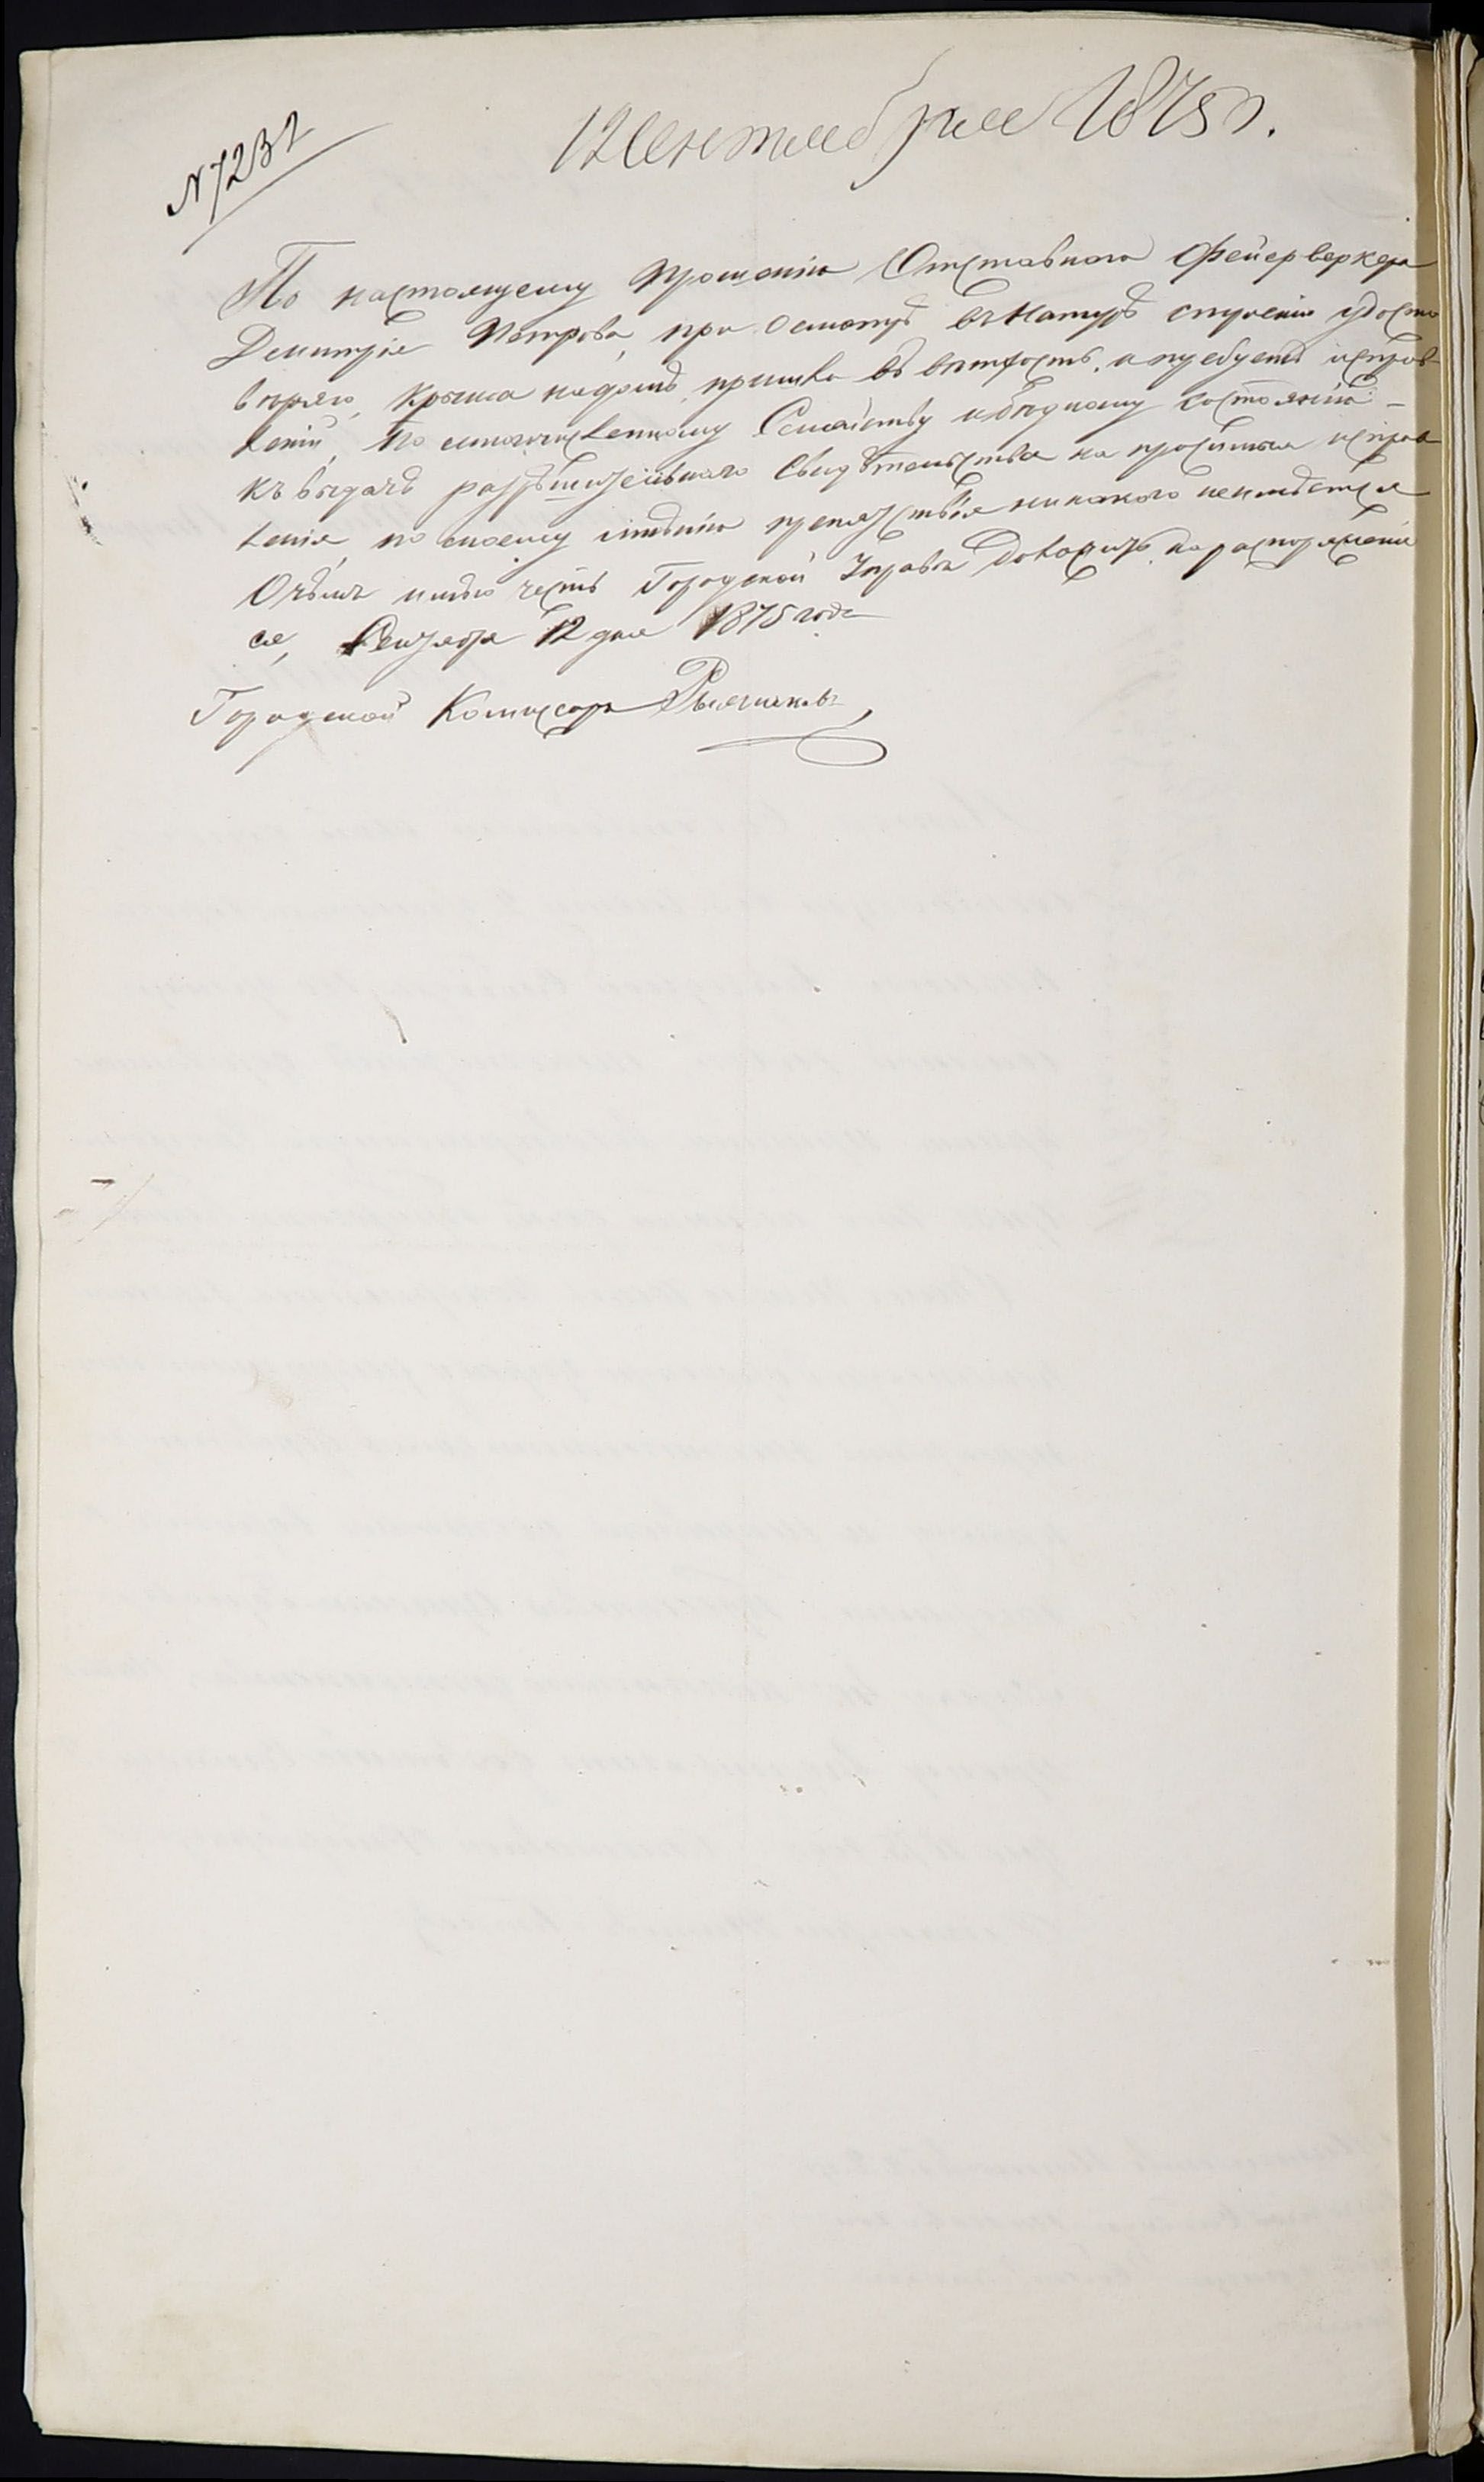 12 Сентября 1875 г.
N 7232
По настоящему прошенію Отставнаго Фейерверкера
Дмитрія Петрова, при осмотрѣ въ натурѣ строенія удосто
веряю, крыша на домѣ пришла въ ветхость, и требуетъ исправ-
ленія, по многочисленному Семейству и бѣдному состоянію –
къ выдачѣ разрѣшительнаго свидѣтельства на просимыя исправ
ленія, по моему мнѣнію препятствія никакого неимѣется
О чѣмъ имѣю честь Городской Управѣ доложить на распоряженіе
ея, Сентября 12 дня 1875 года
Городской Комисаръ